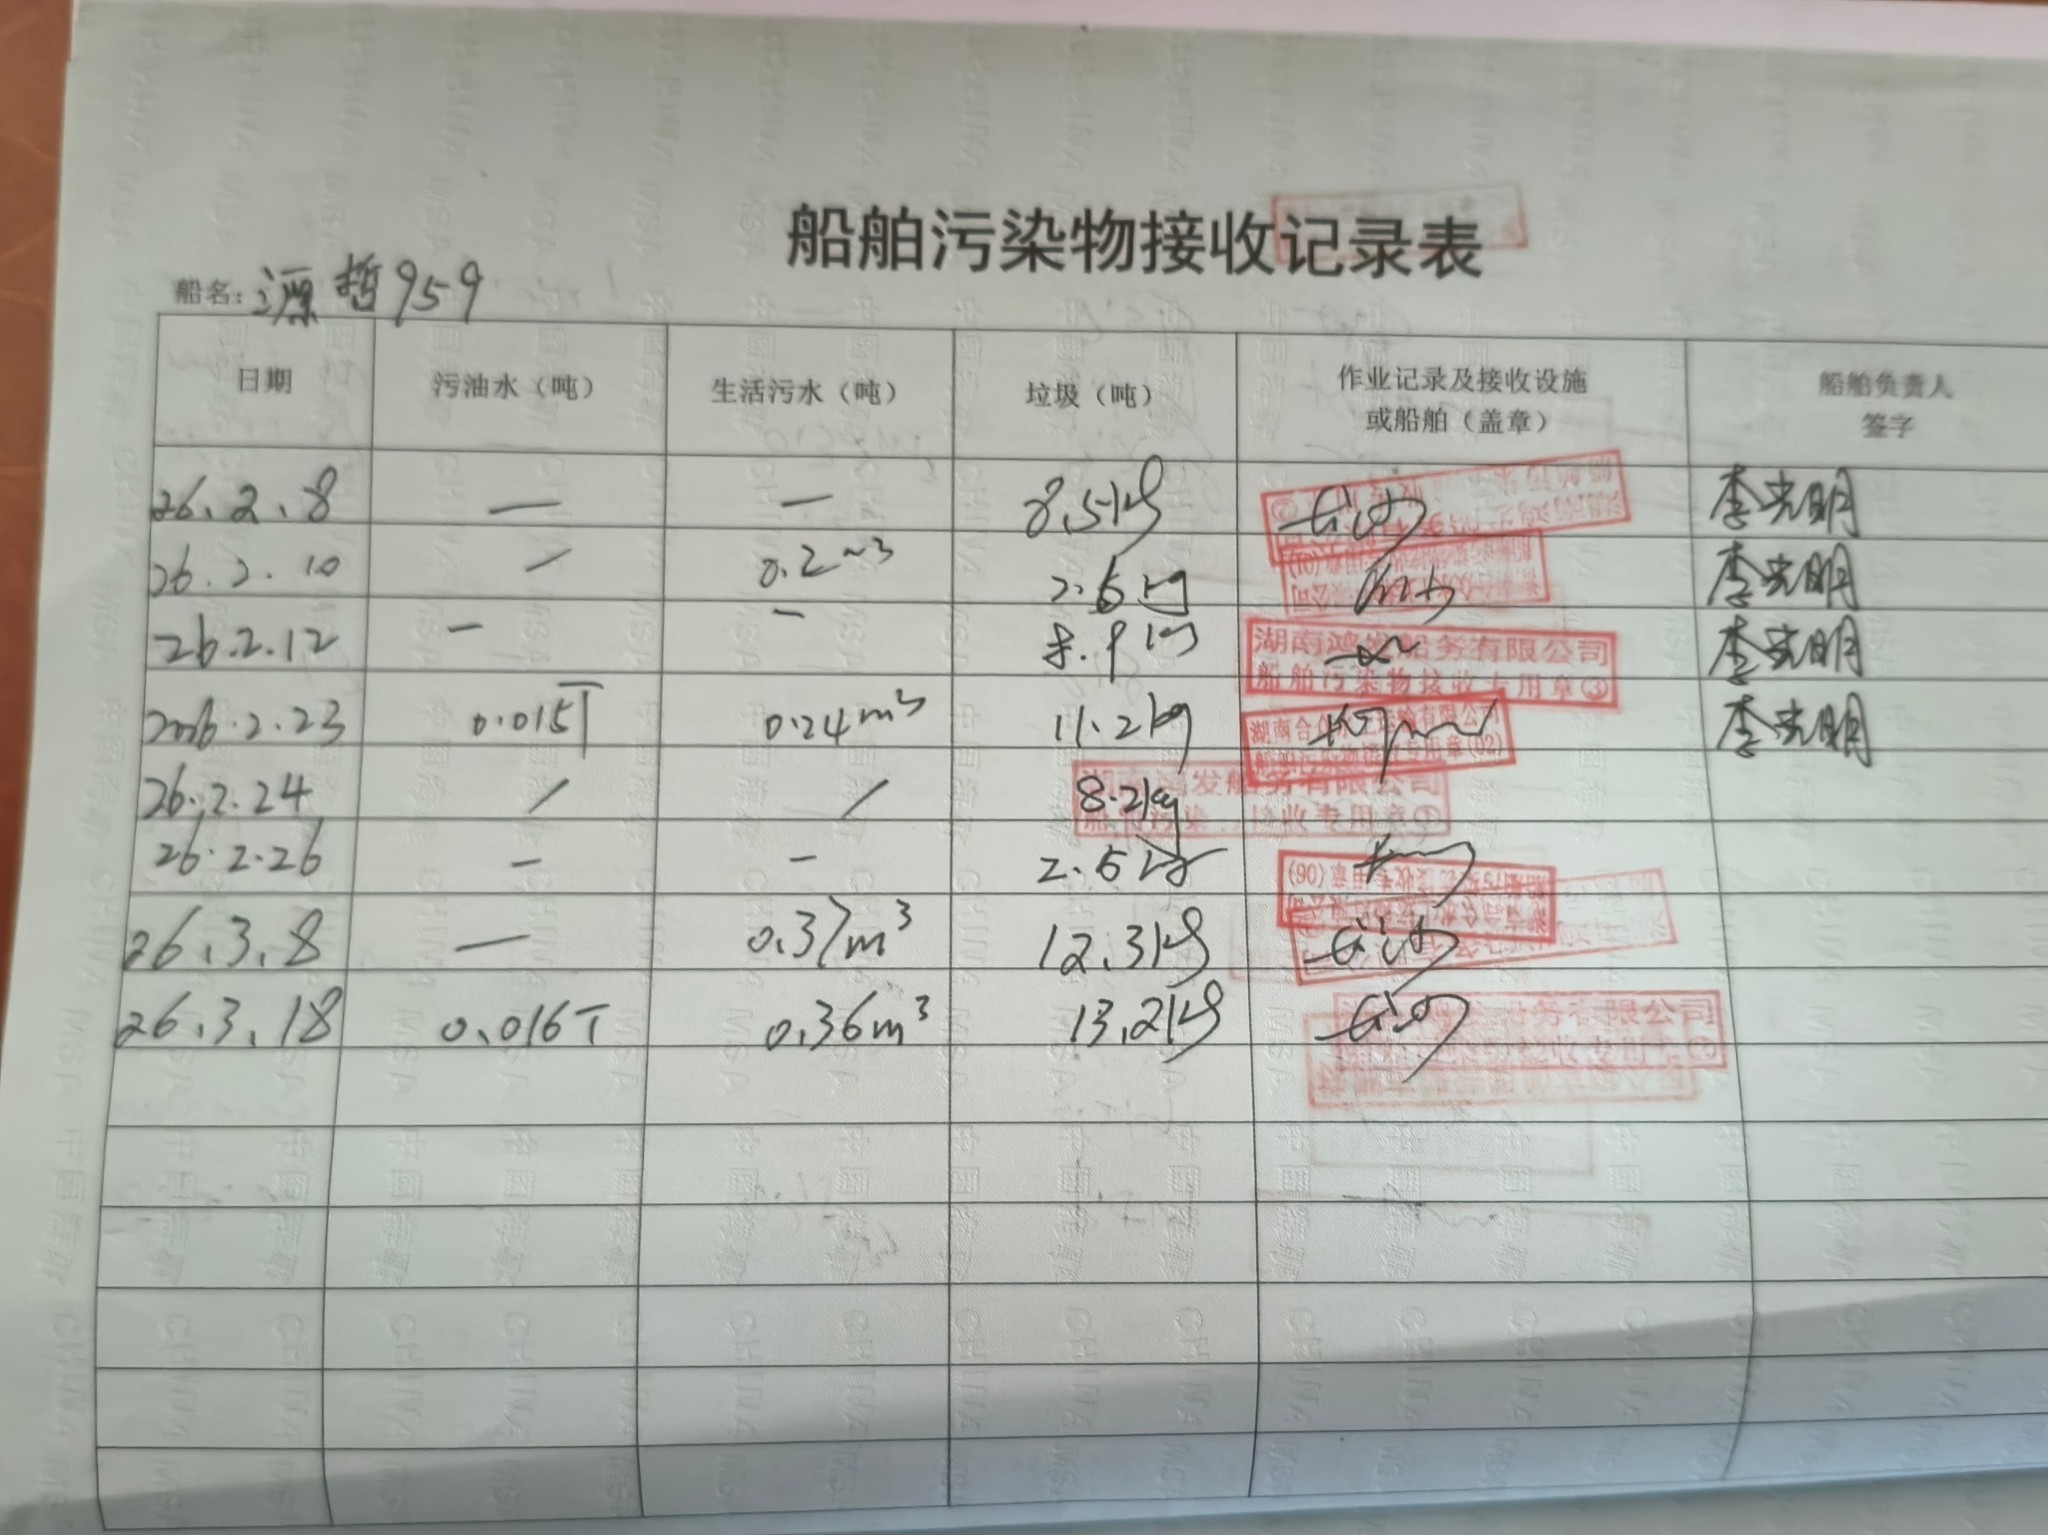 船舶污染物接收记录表
船名：源哲959
日期 污油水（吨） 生活污水（吨） 垃圾（吨） 作业记录及接收设施或船舶（盖章） 船舶负责人签字
26.2.8 — — 8.5kg 李光明
26.2.10 / 0.2m3 2.6kg 李光明
26.2.12 — — 湖南鸿发船务有限公司 李光明
船舶污染物接收专用章③
2026.2.23 0.015T 0.24m3 11.2kg 李光明
26.2.24 / / 8.2kg
发船务有限公司
接收专用章①
26.2.26 — — 2.6kg
26.3.8 — 0.37m3 12.3kg
26.3.18 0.016T 0.36m3 13.2kg
务有限公司